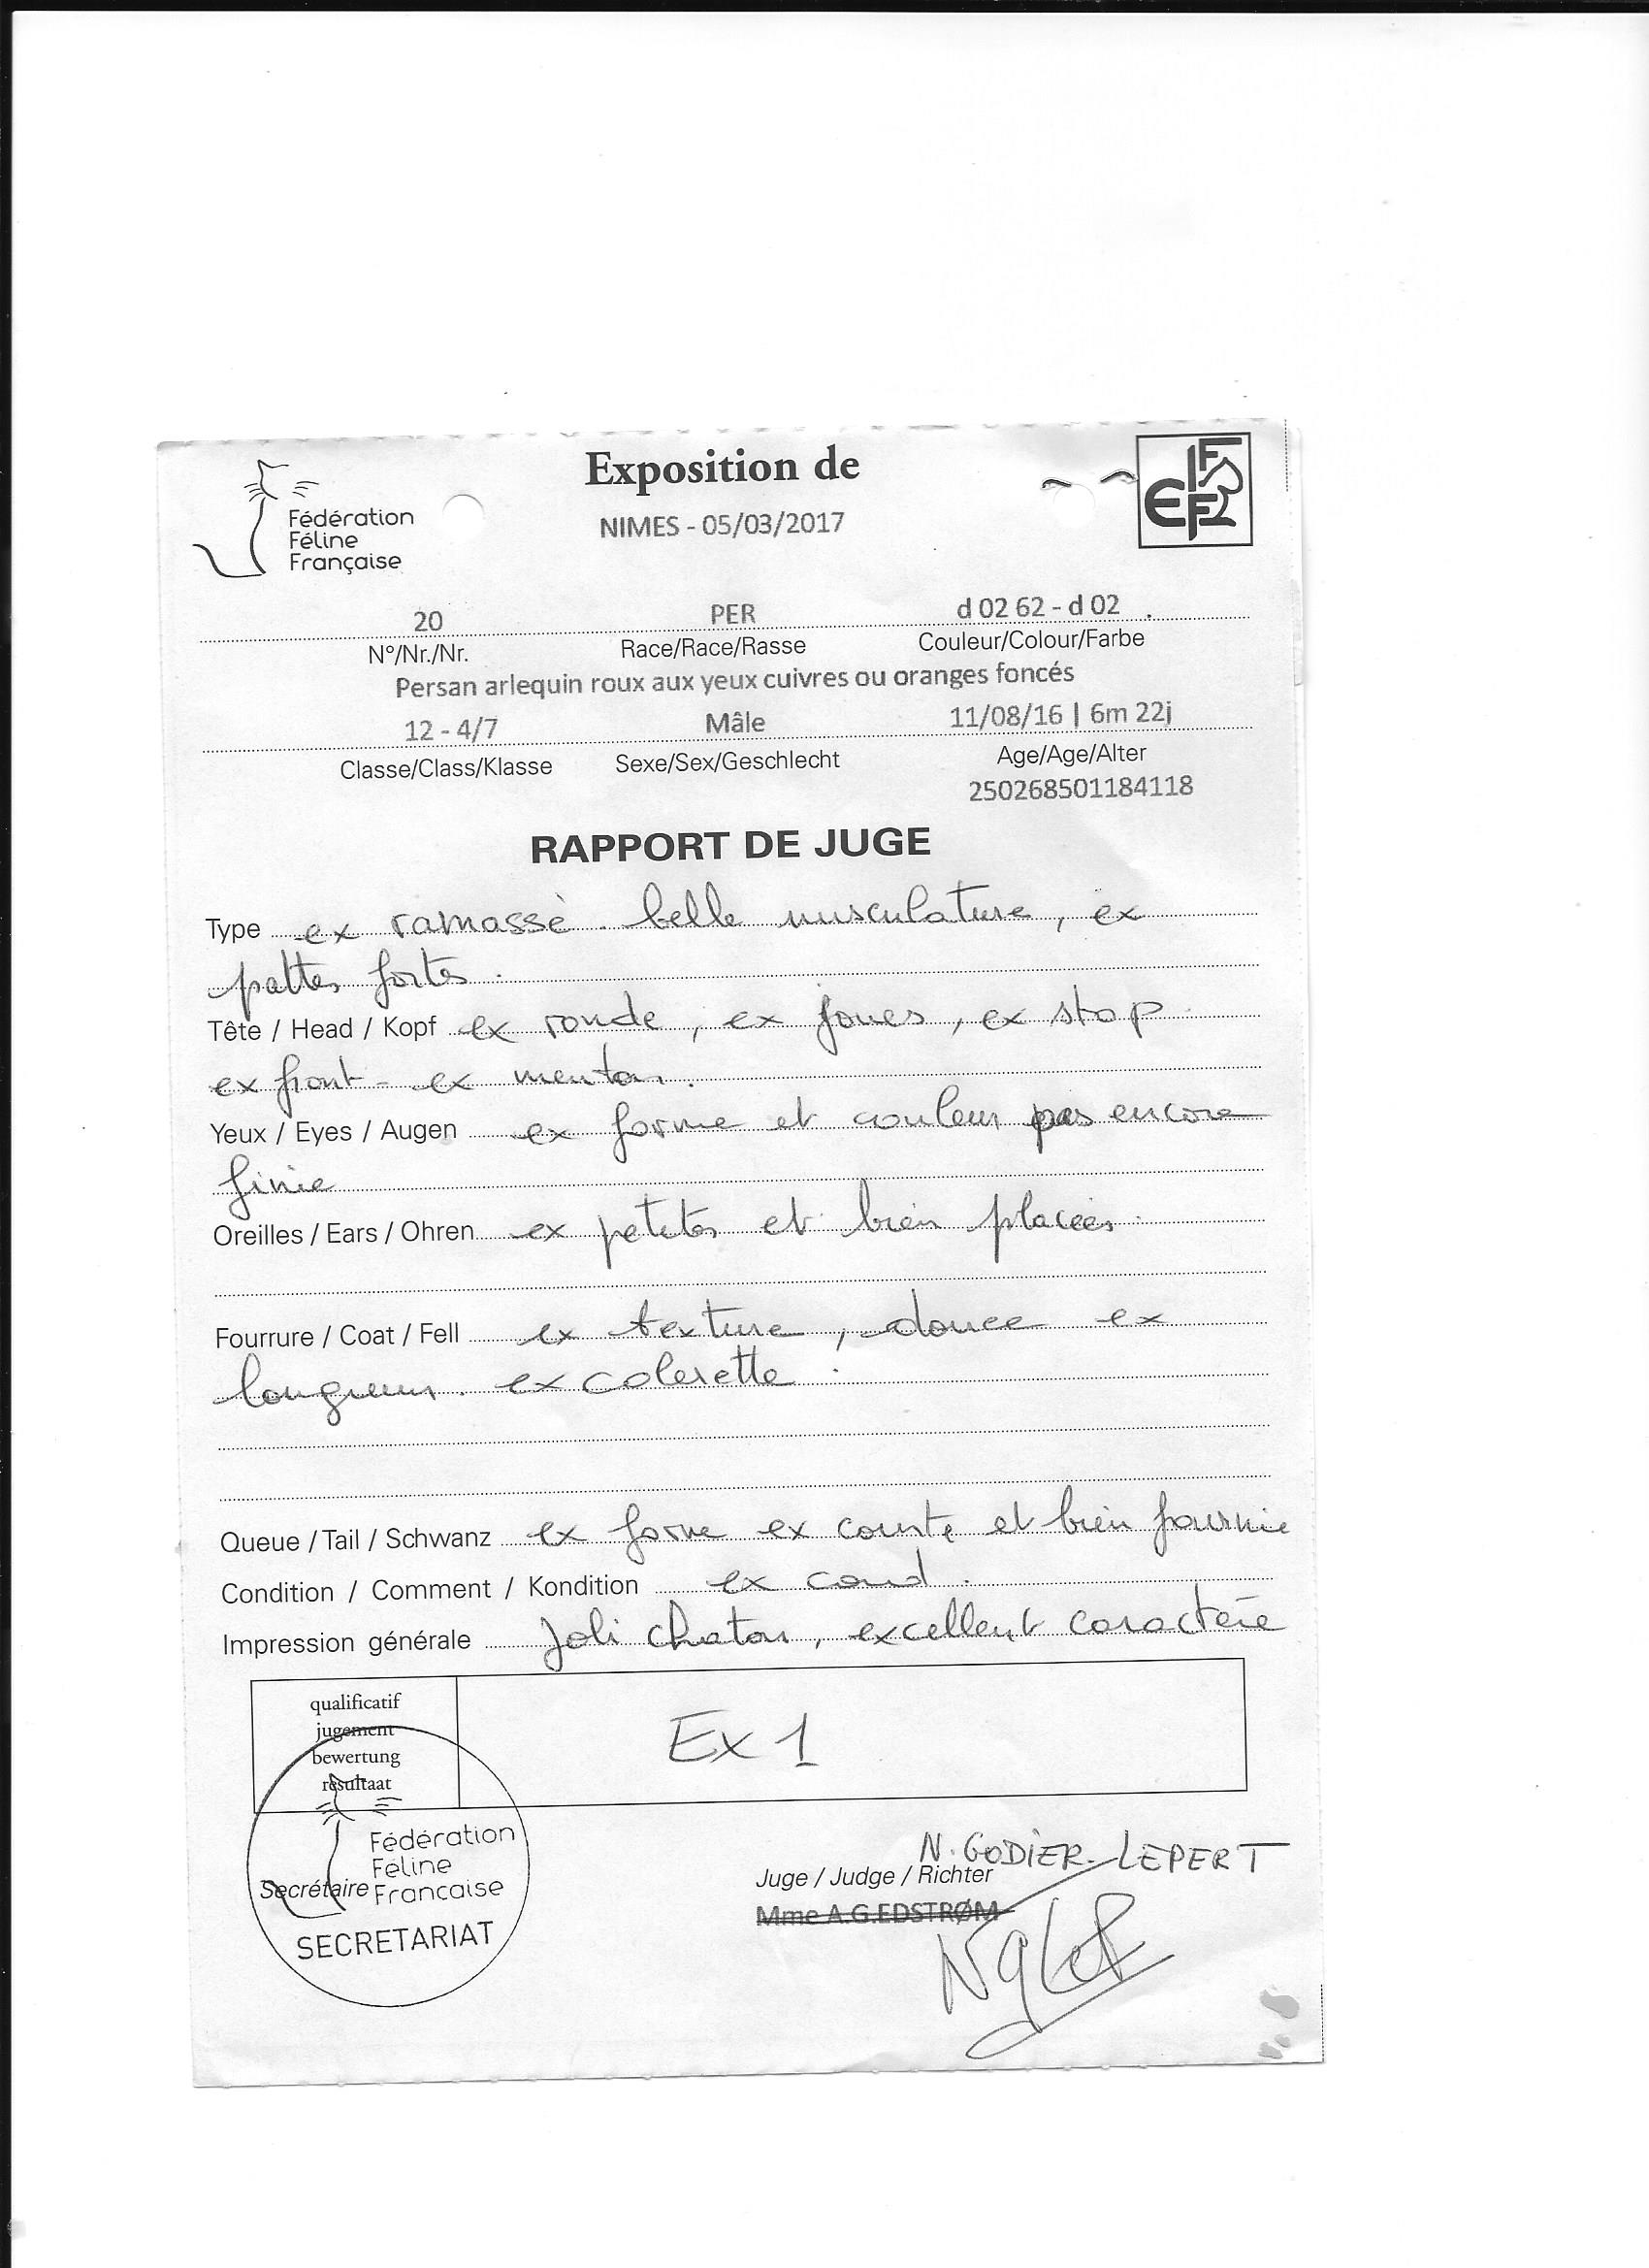 Fédération
Féline
Française
Exposition de
NIMES - 05/03/2017
FIFe
20 PER d 02 62 - d 02 .
N°/Nr./Nr. Race/Race/Rasse Couleur/Colour/Farbe
Persan arlequin roux aux yeux cuivres ou oranges foncés
12 - 4/7 Mâle 11/08/16 | 6m 22j
Classe/Class/Klasse Sexe/Sex/Geschlecht Age/Age/Alter
250268501184118
RAPPORT DE JUGE
Type ex ramassé. belle musculature, ex
pattes fortes.
Tête / Head / Kopf ex ronde, ex joues, ex stop
ex front - ex menton.
Yeux / Eyes / Augen ex forme et couleur pas encore
finie
Oreilles / Ears / Ohren ex petites et bien placées.
Fourrure / Coat / Fell ex texture, douce ex
longueur. ex colerette.
Queue / Tail / Schwanz ex forme ex courte et bien fournie
Condition / Comment / Kondition ex cond.
Impression générale Joli chaton, excellent caractère
qualificatif
jugement
bewertung
resultaat
Ex 1
Fédération
Féline
Française
Secrétaire
SECRETARIAT
N. GODIER-LEPERT
Juge / Judge / Richter
Mme A.G.EDSTRØM